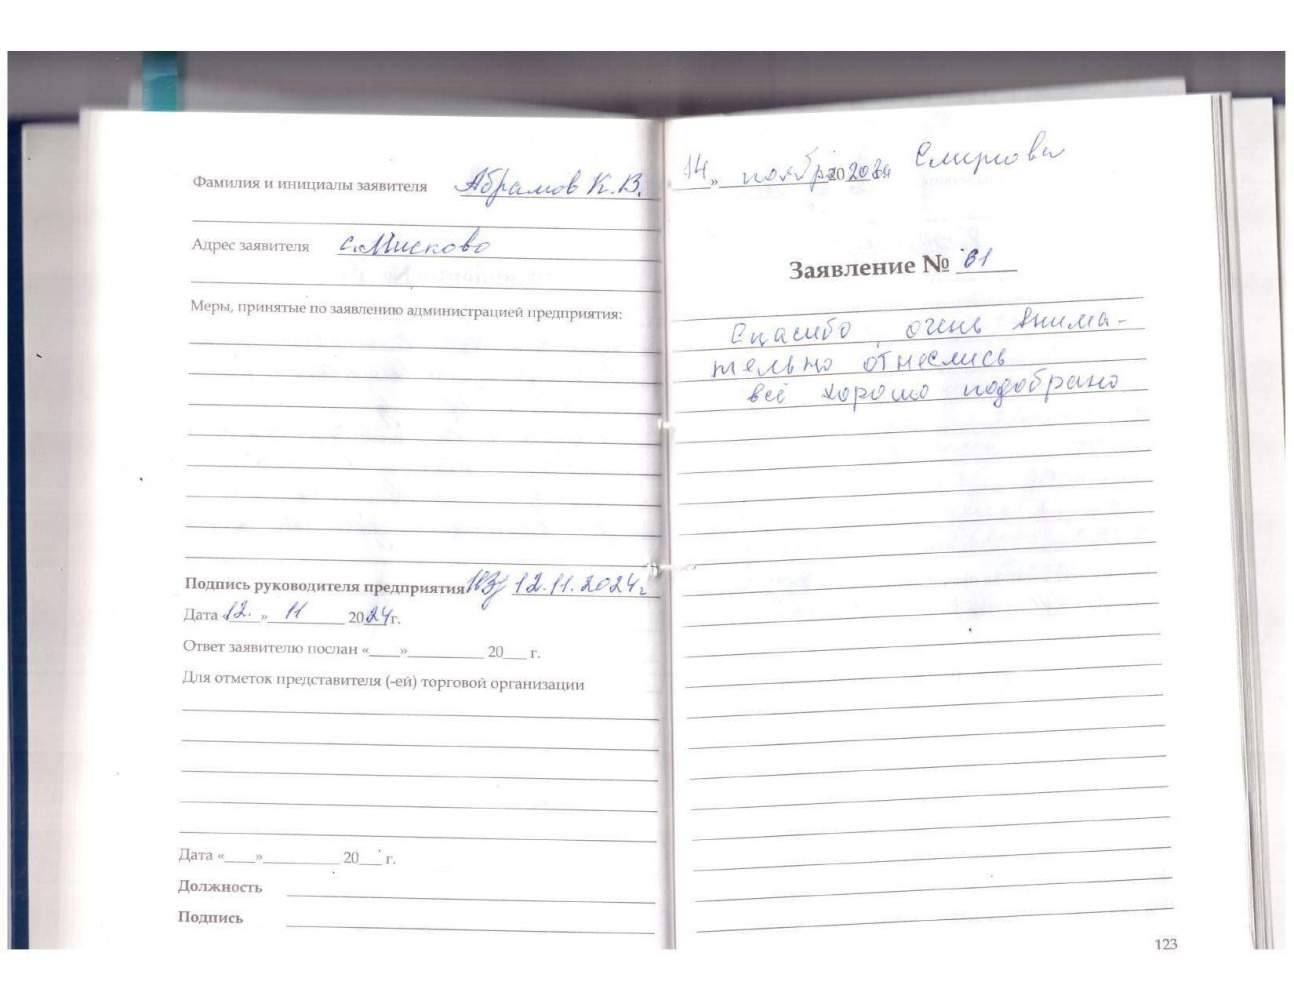 Фамилия и инициалы заявителя Абрамов К.В.
Адрес заявителя с.Мисково
Меры, принятые по заявлению администрацией предприятия:
Подпись руководителя предприятия 12.11.2024г
Дата «12.» 11 2024г.
Ответ заявителю послан «___»_________ 20___ г.
Для отметок представителя (-ей) торговой организации
Дата «___»_________ 20___ г.
Должность
Подпись
14 » ноября 2024 Смирнова
Заявление № 61
Спасибо очень внима-
тельно отнеслись
всё хорошо подобрано
123